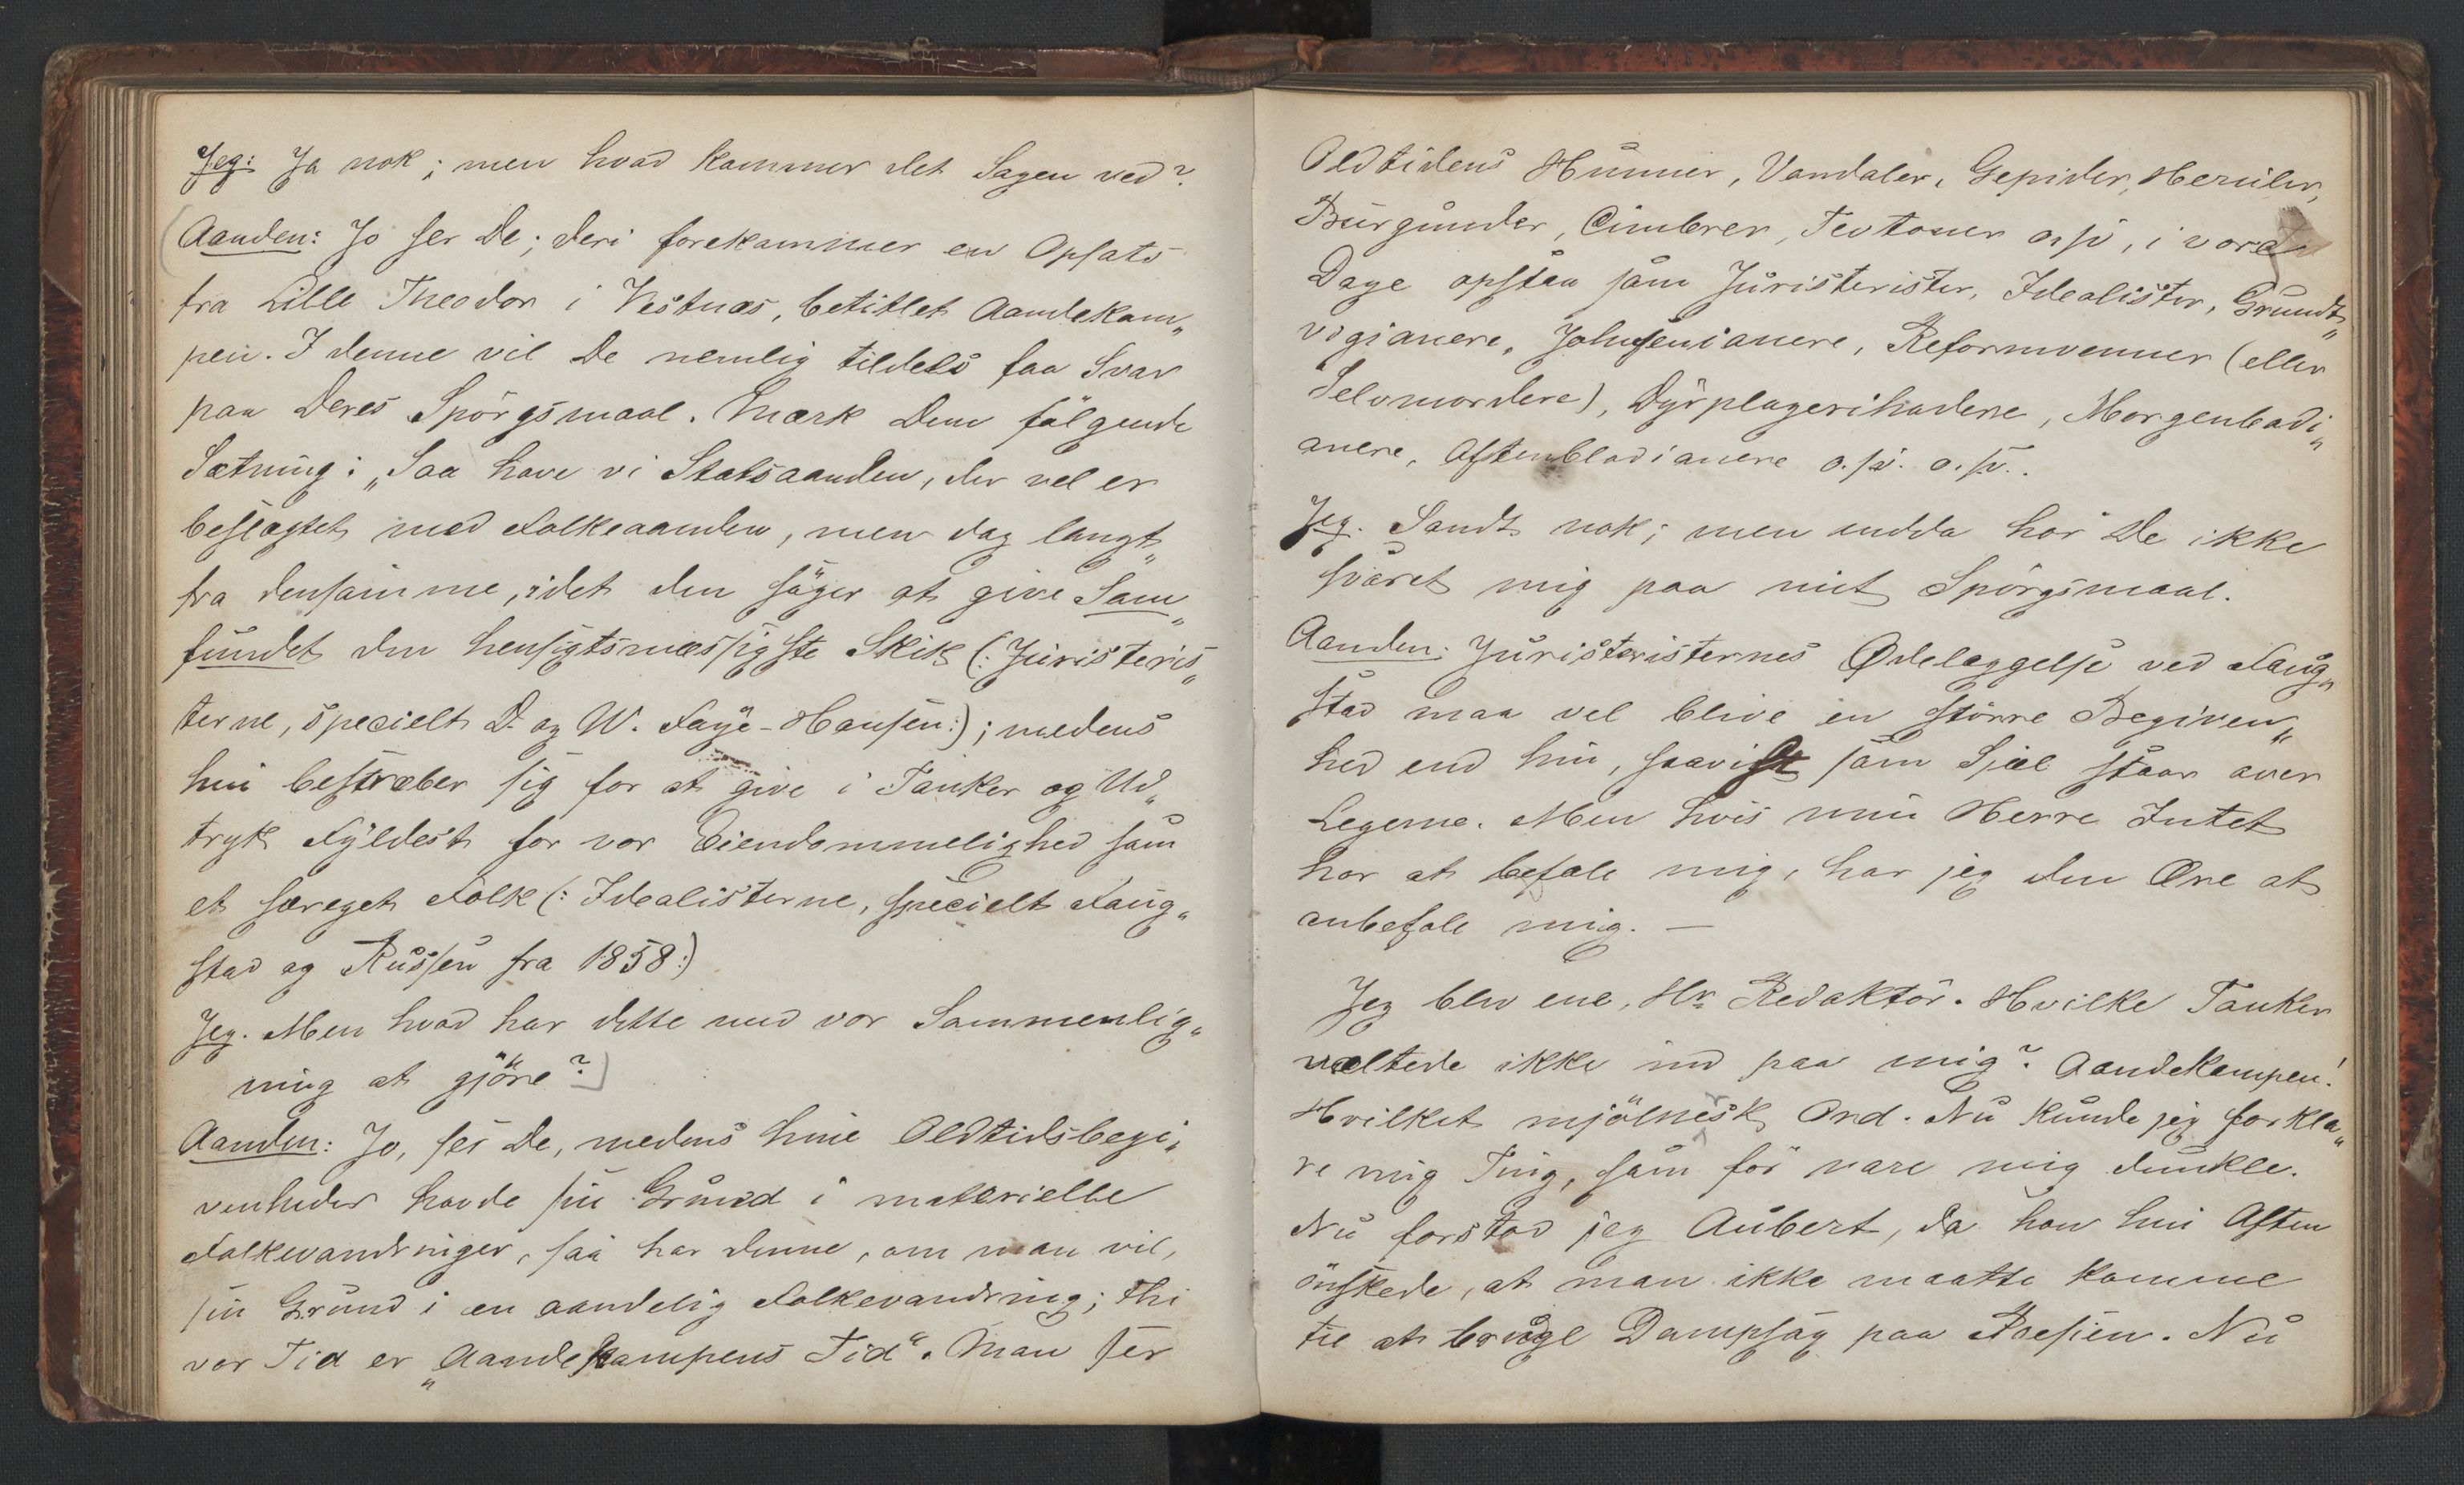 Jeg: Ja nok; men hvad kommer det Sagen ved?
Aanden: Jo ser De; deri forekommer en Opsats
fra Lille Theodor i Vestnæs, betitlet Aandekam„
pen. I denne vil De nemlig tildels faa Svar
paa Deres Spörgsmaal. Mærk Dem følgende
Sætning: „Saa have vi Statsaanden, der vel er
beslægtet med Folkeaanden, men dog langt„
fra densamme, idet den söger at give Sam„
fundet den hensigtsmæssigste Skik (: Juristeris„
terne, specielt D. og W. Faye-Hansen:); medens
hin bestræber sig for at give i Tanker og Ud„
tryk Fyldest for vor Eiendommelighed som
et særeget Folk (: Idealisterne, specielt Faug„
stad og Russen fra 1858:)
Jeg. Men hvad har dette med vor Sammenlig„
ning at gjöre?
Aanden: Jo, ser De, medens hine Oldtidsbegi„
venheder havde sin Grund i materielle
Folkevandringer, saa har denne, om man vil,
sin Grund i en aandelig Folkevandring; thi
vor Tid er „Aandekampens Tid“. Man ser
Oldtidens Hunner, Vandaler, Gepider, Heruler,
Burgunder, Cimbrer, Teutoner o. sv, i vore
Dage opstaa som Juristerister, Idealister, Grundt„
vigianere, Johnsenianere, Reformvenner (eller
Selvmordere), Dyrplagerihadere, Morgenbladi„
anere, Aftenbladianere o. sv. o. sv..
Jeg. Sandt nok; men endda har De ikke
svaret mig paa mit Spörgsmaal.
Aanden: Juristeristernes Ødelæggelse ved Faug„
stad maa vel blive en större Begiven„
hed end hin, saavist som Sjæl staar over
Legeme. Men hvis min Herre Intet
har at befale mig, har jeg den Ære at
anbefale mig. —
Jeg blev ene, Hr. Redaktör. Hvilke Tanker
væltede ikke ind paa mig? Aandekampen!
Hvilket mjölnersk Ord. Nu kunde jeg forkla„
re mig Ting, som för vare mig dunkle.
Nu forstod jeg Aubert, da han hin Aften
önskede, at man ikke maatte komme
til at bruge Dampsag paa Poesien. Nu